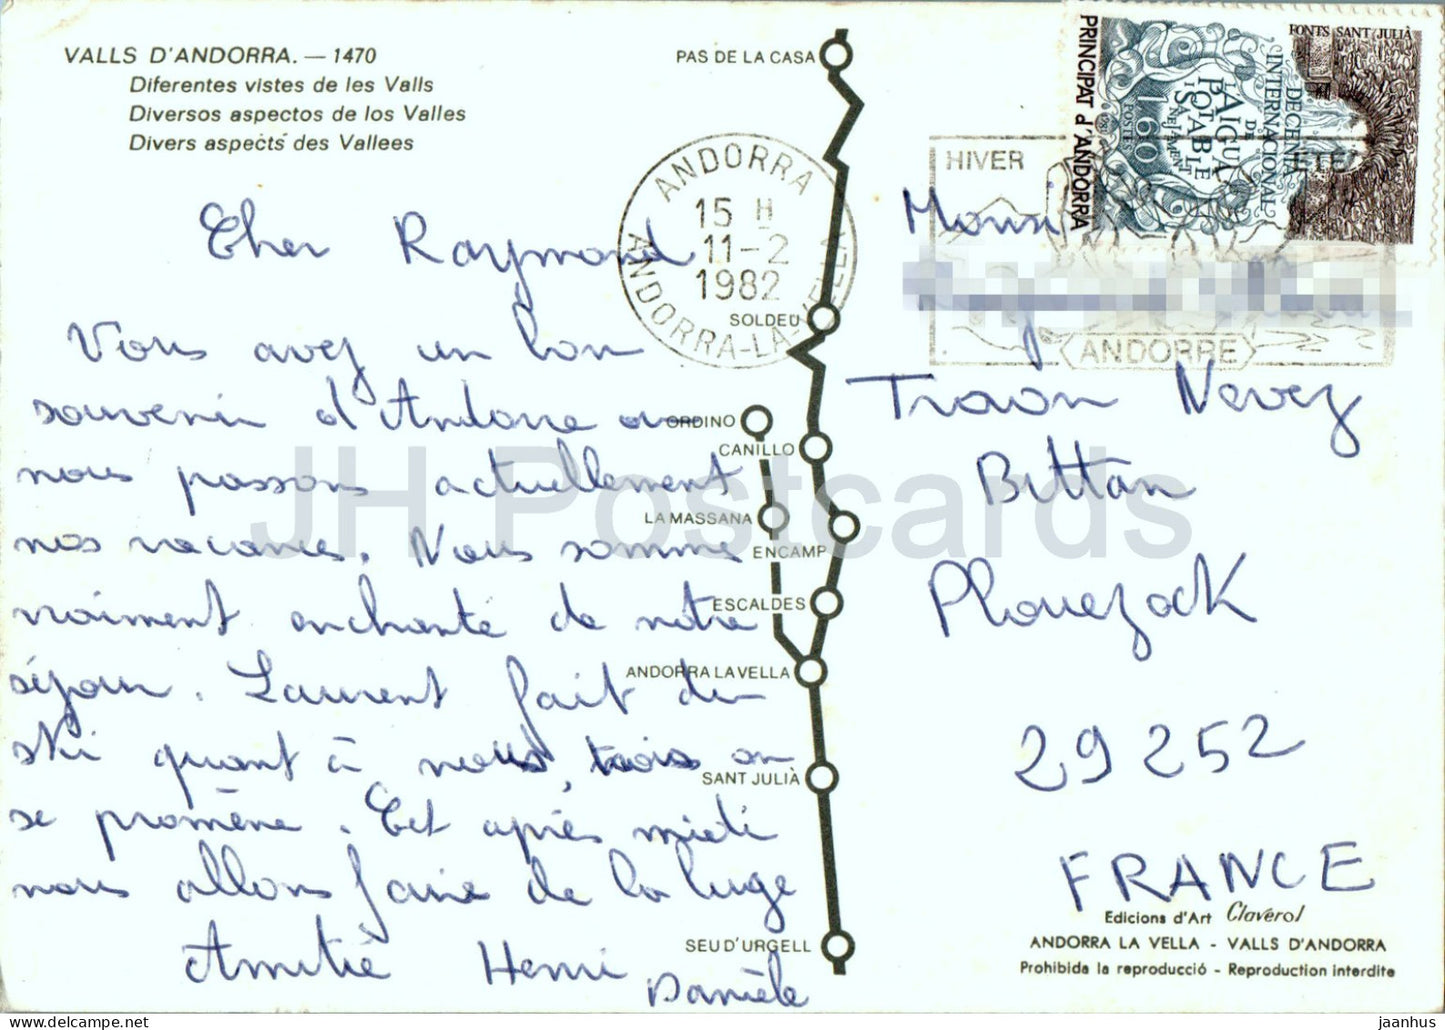 VALLS D'ANDORRA. — 1470
Diferentes vistes de les Valls
Diversos aspectos de los Valles
Divers aspects des Vallees
Cher Raymond
Vous avez un bon
souvenir d'Andorre ou
nous passons actuellement
nos vacances. Nous somme
vraiment enchanté de notre
séjour. Laurent fait du
ski quant à nous trois on
se promène. Cet après midi
nous allons faire de la luge
Amitié Henri
Danièle
PAS DE LA CASA
SOLDEU
ORDINO
CANILLO
LA MASSANA
ENCAMP
ESCALDES
ANDORRA LA VELLA
SANT JULIÀ
SEU D'URGELL
ANDORRA
15 H
11-2
1982
ANDORRA-LA-VELLA
HIVER
ETE
ANDORRE
PRINCIPAT d'ANDORRA
FONTS SANT JULIÀ
DECENNI
INTERNACIONAL
DE
L'AIGUA
POTABLE
I
SANEJAMENT
1,60
POSTES
Monsi
Traon Nevez
Bittan
Plouezock
29252
FRANCE
Edicions d'Art Claverol
ANDORRA LA VELLA - VALLS D'ANDORRA
Prohibida la reproducció - Reproduction interdite
JH Postcards
jaanhus / www.delcampe.net